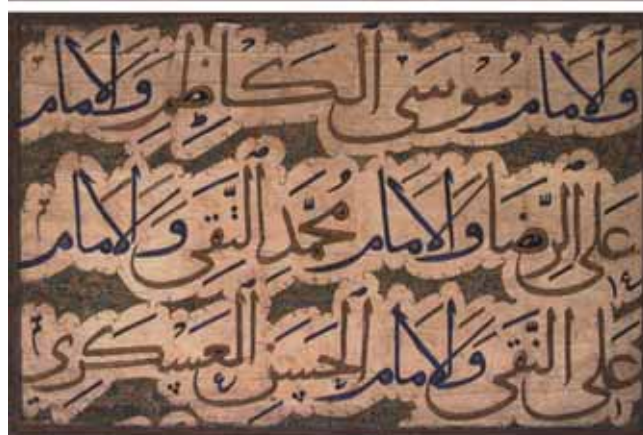 والامام موسى الكاظم والامام
على الرضا والامام محمد التقى والامام
على النقى والامام الحسن العسكرى